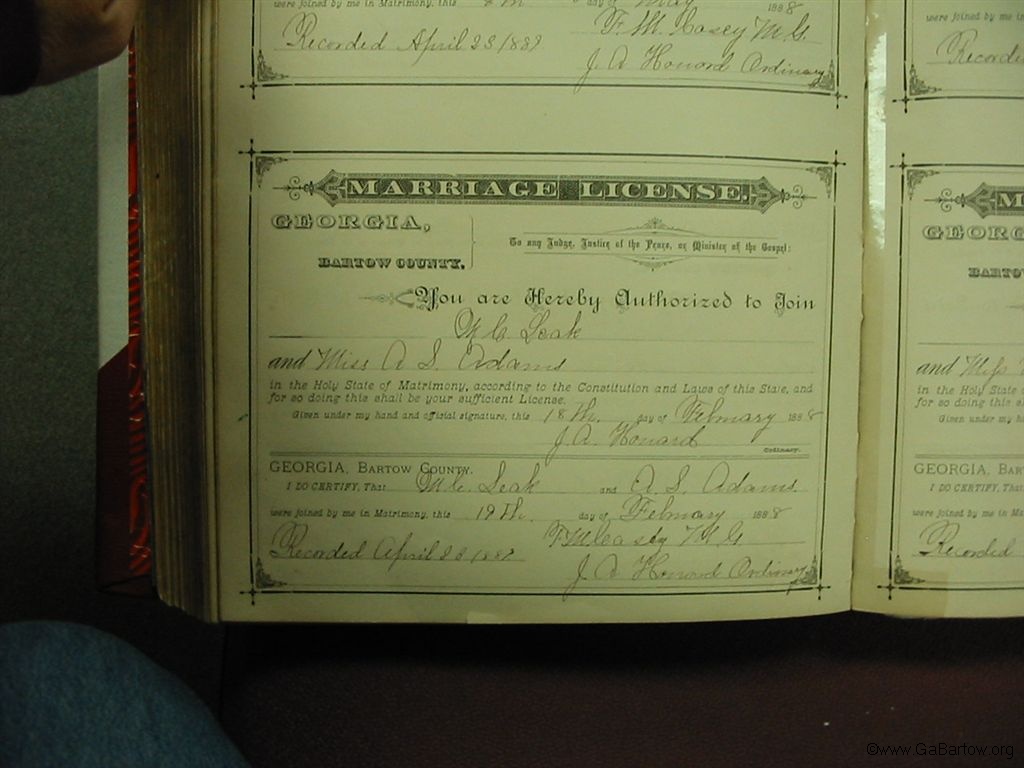 were joined by me in Matrimony, this day of May 1888
Recorded April 23/889 F. M. Casey M.G.
J A Howard Ordinary
Recorded
MARRIAGE LICENSE.
GEORGIA,
BARTOW COUNTY.
To any Judge, Justice of the Peace, or Minister of the Gospel:
You are Hereby Authorized to Join
M. C. Leak
and Miss A S. Adams
in the Holy State of Matrimony, according to the Constitution and Laws of this State, and
for so doing this shall be your sufficient License.
Given under my hand and official signature, this 18th. day of February 1888
J. A. Howard
Ordinary.
GEORGIA, BARTOW COUNTY.
I DO CERTIFY, That M C. Leak and A. S. Adams
were joined by me in Matrimony, this 19th. day of February 1888
Recorded April F M Casey M.G
J A Howard Ordinary
M
GEORG
BARTOW
and Miss
in the Holy State
for so doing this
Given under my
GEORGIA, BAR
I DO CERTIFY,
were joined by me in M
Recorded
©www.GaBartow.org